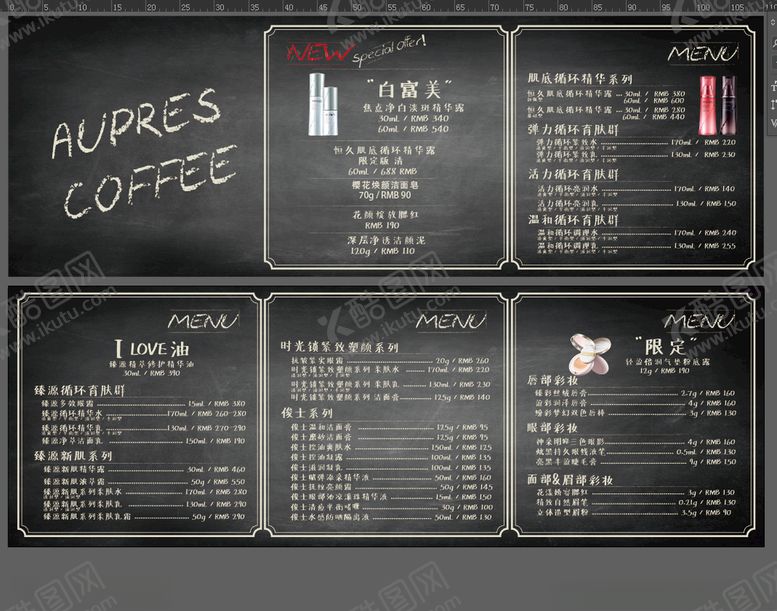 AUPRES
COFFEE
NEW special offer!
"白富美"
焦点净白淡斑精华露
30ml / RMB 340
60ml / RMB 540
恒久肌底循环精华露
限定版 清
60ml / 688 RMB
樱花焕颜洁面皂
70g / RMB 90
花颜绽放腮红
RMB 190
深层净透洁颜泥
120g / RMB 110
MENU
肌底循环精华系列
恒久肌底循环精华露 30ml / RMB 380
60ml / RMB 600
恒久肌底循环精华露 30ml / RMB 280
60ml / RMB 440
弹力循环育肤群
弹力循环紧致水 170ml / RMB 220
弹力循环紧致乳 130ml / RMB 230
活力循环育肤群
活力循环亮润水 170ml / RMB 140
活力循环亮润乳 130ml / RMB 150
温和循环育肤群
温和循环调理水 170ml / RMB 240
温和循环调理乳 130ml / RMB 255
MENU
I LOVE 油
臻源精萃修护精华油
30ml / RMB 390
臻源循环育肤群
臻源多效眼霜 15ml / RMB 380
臻源循环精华水 170ml / RMB 260-280
臻源循环精华乳 130ml / RMB 270-290
臻源净萃洁面乳 150ml / RMB 190
臻源新肌系列
臻源新肌精华露 30ml / RMB 460
臻源新肌浓萃霜 50g / RMB 550
臻源新肌系列柔肤水 170ml / RMB 280
臻源新肌系列柔肤乳 130ml / RMB 290
臻源新肌系列柔肤乳霜 50g / RMB 290
MENU
时光锁紧致塑颜系列
抗皱紧实眼霜 20g / RMB 260
时光锁紧致塑颜系列 柔肤水 170ml / RMB 220
时光锁紧致塑颜系列 柔肤乳 130ml / RMB 230
时光锁紧致塑颜系列 洁面膏 125g / RMB 140
俊士系列
俊士温和洁面膏 125g / RMB 95
俊士磨砂洁面膏 125g / RMB 95
俊士控油爽肤水 150ml / RMB 125
俊士控油凝露 100ml / RMB 135
俊士滴润凝乳 100ml / RMB 135
俊士赋弹添柔精华液 50ml / RMB 160
俊士抚纹亮颜霜 50g / RMB 145
俊士眼部沁凉滚珠精华液 15ml / RMB 150
俊士清痘平衡啫喱 30g / RMB 100
俊士水感防晒隔离液 50ml / RMB 130
MENU
"限定"
轻盈倍润气垫粉底霜
12g / RMB 190
唇部彩妆
臻彩丝绒唇膏 2.7g / RMB 160
盈彩润泽唇膏 4g / RMB 160
缤彩梦幻双色唇棒 3g / RMB 130
眼部彩妆
神采明眸三色眼影 4g / RMB 160
炫黑持久眼线液笔 0.5ml / RMB 130
亮黑丰盈睫毛膏 9g / RMB 150
面部&眉部彩妆
花漾娇容腮红 3g / RMB 130
精致自然眉笔 0.1g / RMB 130
立体造型眉粉 3.5g / RMB 90